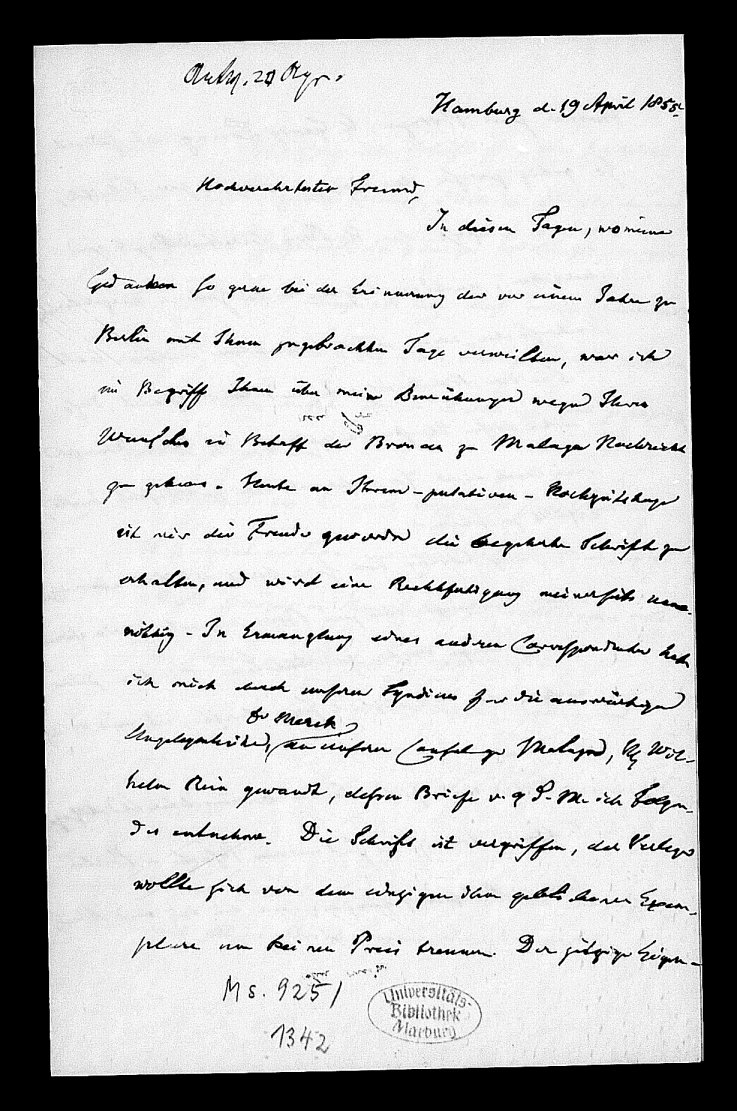 Hamburg d. 19 April 1855.
Hochverehrtester Freund,
In diesen Tagen, wo meine
Gedanken so gerne bei der Erinnerung der vor einem Jahre zu
Berlin mit Ihnen zugebrachten Tage verweilten, war ich
im Begriff Ihnen über meine Bemühungen wegen Ihres
Wunsches in Betreff der Broncen zu Malaga Nachricht
zu geben. Heute an Ihrem - putativen - Hochzeitstage
ist mir die Freude geworden die begehrte Schrift zu
erhalten, und wird eine Rechtfertigung meinerseits
nöthig - In Ermanglung eines anderen Correspondenten habe
ich mich durch unseren Syndicus für die auswärtigen
Angelegenheiten, Dr Merck, an unseren Consul zu Malaga, Wil-
helm Rein gewandt, dessen Briefe v. 9 d. M. ich Folgen-
des entnehme. Die Schrift ist vergriffen, der Verleger
wollte sich von dem einzigen ihm gebliebenen Exem-
plare um keinen Preis trennen. Der jetzige Eigen-
Ms. 925/
1342
Universitäts-
Bibliothek
Marburg